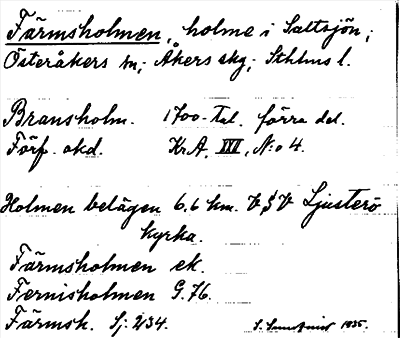 Färmsholmen, holme i Saltsjön,
Österåkers sn, Åkers skg, Sthlms l.
Bransholm. 1700-tal. förra del.
Förf. okd. Kr.A. XXI, N:o 4.
Holmen belägen 6.6 km. V§V Ljusterö
kyrka.
Färmsholmen ek.
Fernisholmen G.76.
Färmsh. Sj: 234.
S. 1935.